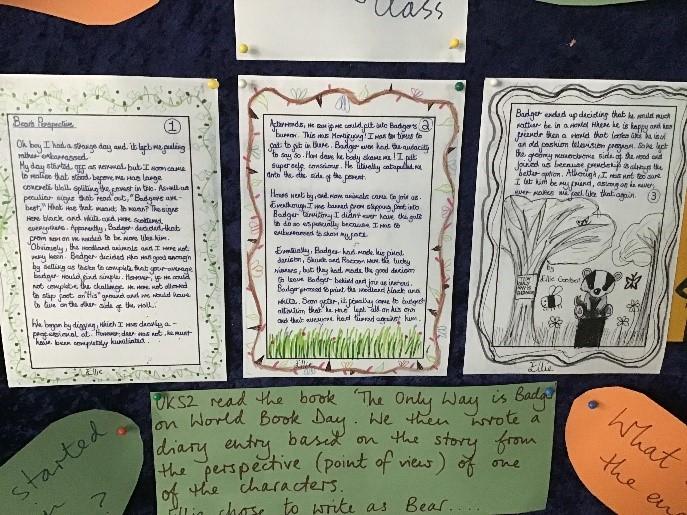 Class
Bear's Perspective
1
Oh boy I had a strange day and it left me feeling
rather embarrassed.
My day started off as normal but I soon came
to realise that stood before me was large
concrete wall splitting the forest in two. As well as
peculiar signs that read out, "Badgers are
best," What was that meant to mean? The signs
were black and white and were scattered
everywhere. Apparently, Badger decided that
from now on we needed to be more like him.
Obviously, the woodland animals and I were not
very keen. Badger decided who was good enough
by setting us tasks to complete that your average
badger would find simple. However, if we could
not complete the challenge we were not allowed
to slip foot on 'His' ground and we would have
to live on the other side of the wall.
We began by digging, which I was clearly a
professional at. However deer was not, he must
have been completely humiliated.
Ellie
2
Afterwards, we saw if we could fit into Badger's
burrow. This was Horrifying! I was far
to fat to fit in there. Badger even had the audacity
to say so. How dare he body shame me! I felt
super self conscious. He literally catapulted me
onto the other side of the forest.
Hours went by, and more animals came to join us.
Eventhough I was banned from slipping foot into
Badger territory I didn't ever have the guts
to do so especially because I was to
embarrassed to show my face.
Eventually, Badger had made his final
decision, Skunk and Racoon were the lucky
winners, but they had made the good decision
to leave Badger behind and join us instead.
Badger proceed to paint the woodland black and
white. Soon after, it finally came to badger's
attention that he was left all on his own
and that everyone had turned against him.
Ellie
Badger ended up deciding that he would much
rather be in a world where he is happy and has
friends than a world that looks like he is in
an old fashion television program. So he left
the gloomy monochrome side of the wood and
joined us because friendship is always the
better option. Although, I was not sure
I let him be my friend, as long as he never
ever makes me feel like that again.
3
By
Ellie
Ellie
UKS2 read the book 'The Only Way is Badger
on World Book Day. We then wrote a
diary entry based on the story from
the perspective (point of view) of one
of the characters.
Ellie chose to write as Bear....
started
in
?
What
the en